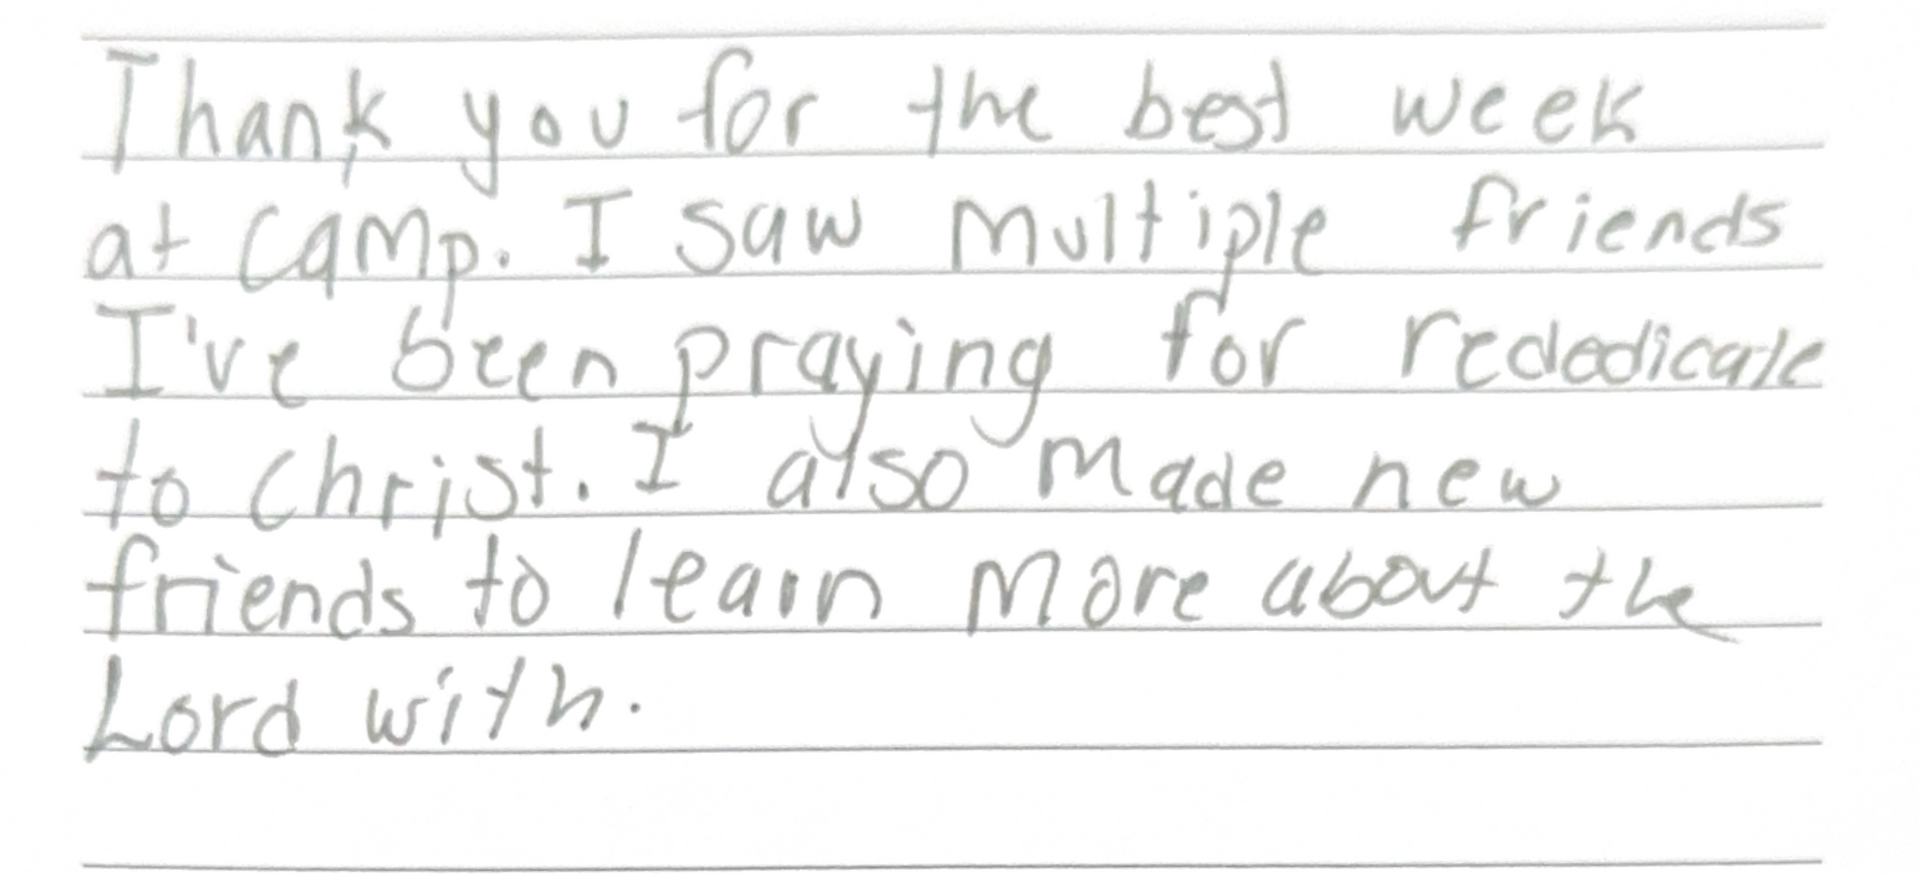 Thank you for the best week
at camp. I saw multiple friends
I've been praying for rededicate
to Christ. I also made new
friends to learn more about the
Lord with.